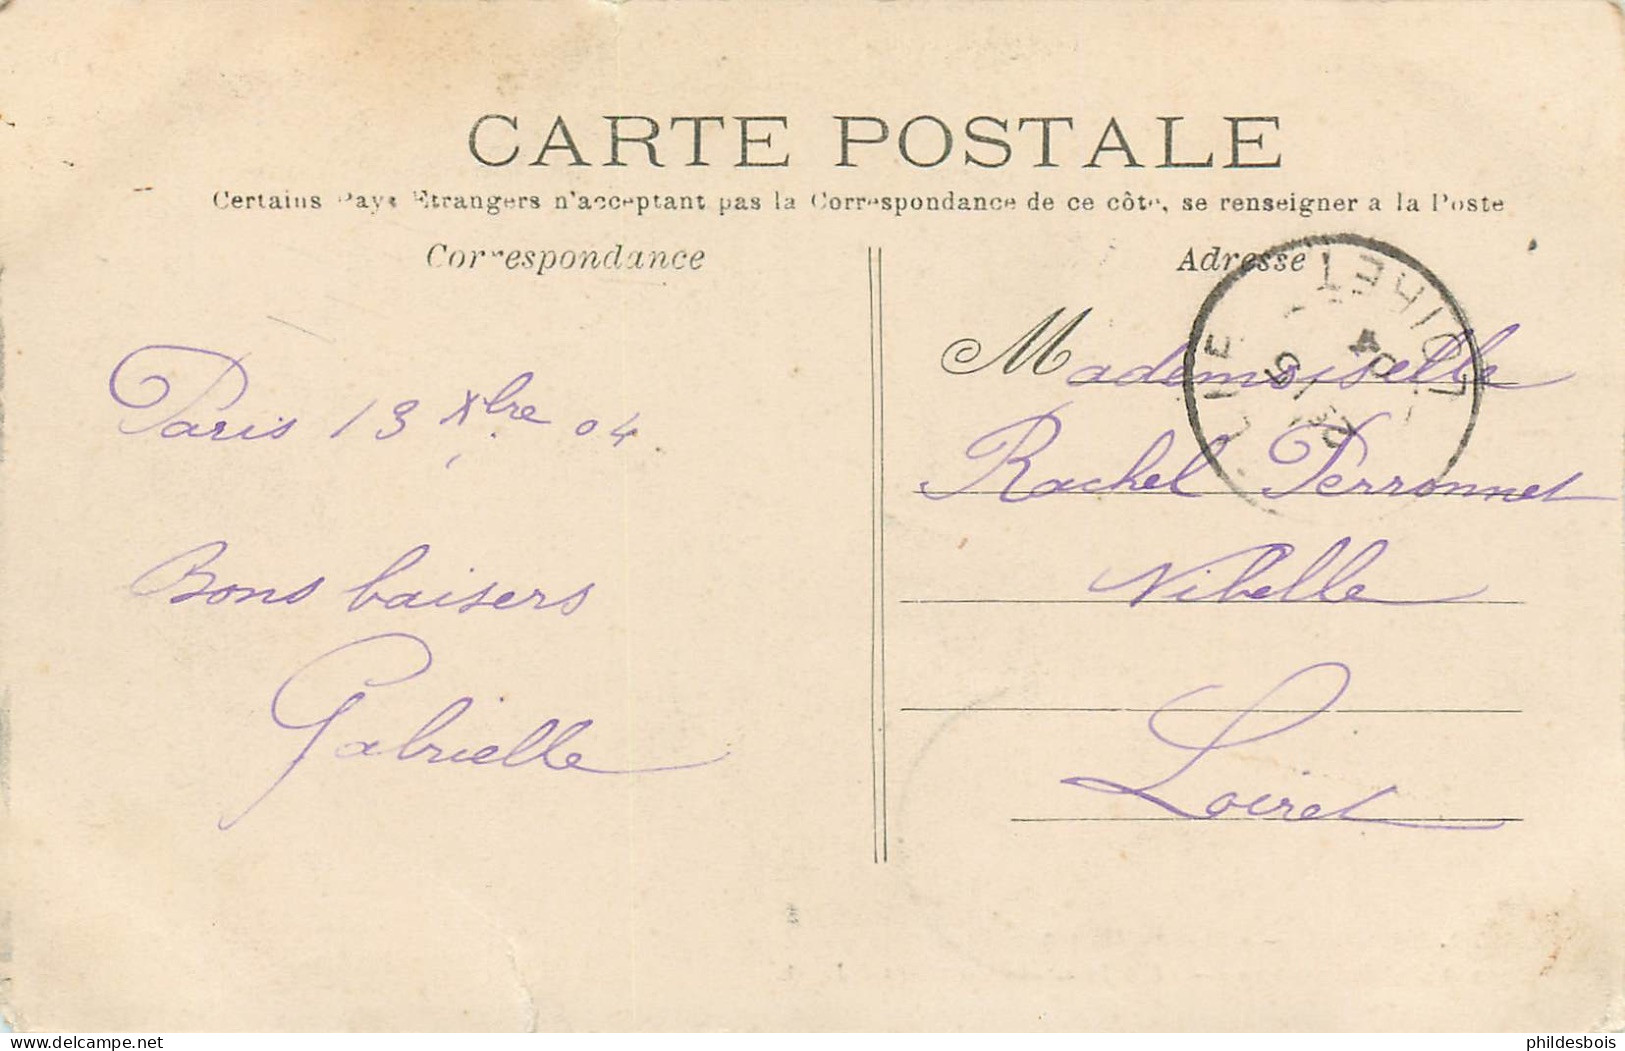 CARTE POSTALE
Certains Pays Etrangers n'acceptant pas la Correspondance de ce côté, se renseigner a la Poste
Correspondance
Adresse
Paris 13 Xbre 04
Bons baisers
Gabrielle
Mademoiselle
Rachel Perronnet
Nibelle
Loiret
LOIRET
04
philedesbois